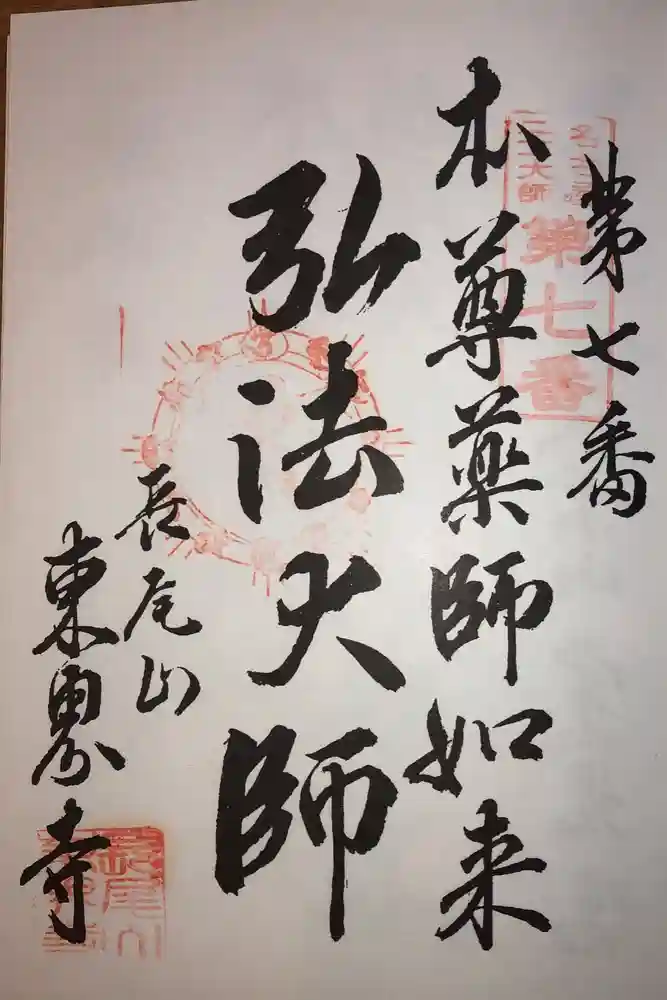 第七番
本尊薬師如来
弘法大師
長尾山
東界寺
名古屋
二十一大師
第七番
長尾山